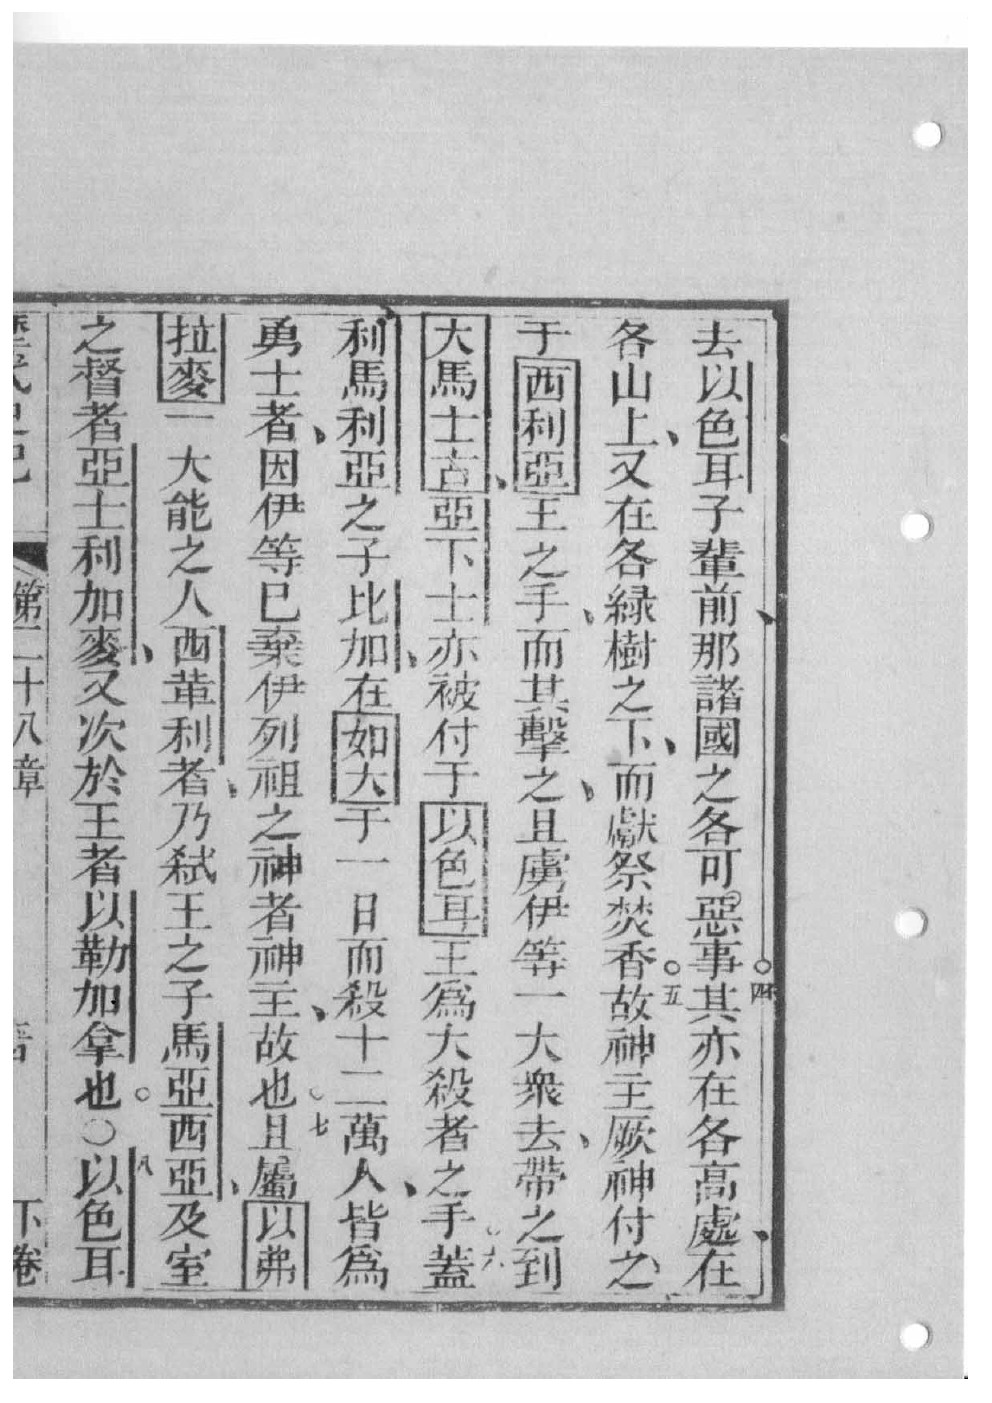 去以色耳子輩前、那諸國之各可惡事。四其亦在各高處、在
各山上、又在各綠樹之下、而獻祭焚香。五故神主厥神付之
于西利亞王之手、而其擊之、且虜伊等一大衆去、帶之到
大馬士古、亞下士亦被付于以色耳王爲大殺者之手。六蓋
利馬利亞之子比加、在如大于一日而殺十二萬人、皆爲
勇士者、因伊等已棄伊列祖之神者神主、故也。七且屬以弗
拉麥一大能之人西革利者、乃弒王之子馬亞西亞、及室
之督者亞士利加麥、又次於王者以勒加拿也。〇八以色耳
歷代史記 第二十八章 下卷